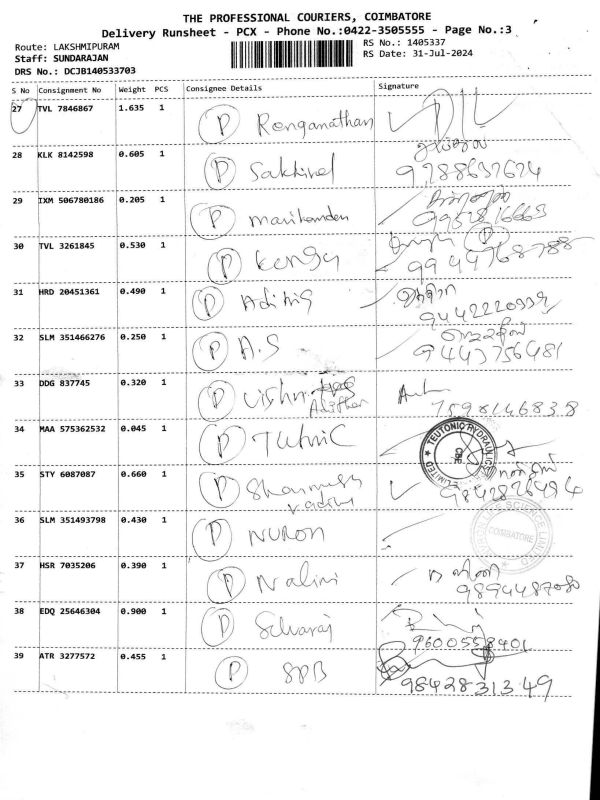 THE PROFESSIONAL COURIERS, COIMBATORE
Delivery Runsheet - PCX - Phone No.:0422-3505555 - Page No.:3
Route: LAKSHMIPURAM
RS No.: 1405337
Staff: SUNDARAJAN
RS Date: 31-Jul-2024
DRS No.: DCJB140533703
S No Consignment No Weight PCS Consignee Details Signature
27 TVL 7846867 1.635 1 (P) Renganathan
28 KLK 8142598 0.605 1 (P) Sakthivel
9788637674
29 IXM 506780186 0.205 1 (P)
30 TVL 3261845 0.530 1 (P) (P)
9944768788
31 HRD 20451361 0.490 1 (P)
32 SLM 351466276 0.250 1 (P) A.S
9443756481
33 DDG 837745 0.320 1 (P)
7598146838
34 MAA 575362532 0.045 1 (P) TEUTONIC HYDRAULICS LIMITED CBE
35 STY 6087087 0.660 1 (P)
9842826494
36 SLM 351493798 0.430 1 (P) NURON
SCIENCE LIMITED COIMBATORE
37 HSR 7035206 0.390 1 (P) Nalini
9894487080
38 EDQ 25646304 0.900 1 (P) Selvaraj
9600558401
39 ATR 3277572 0.455 1 (P) SPB
9842831349